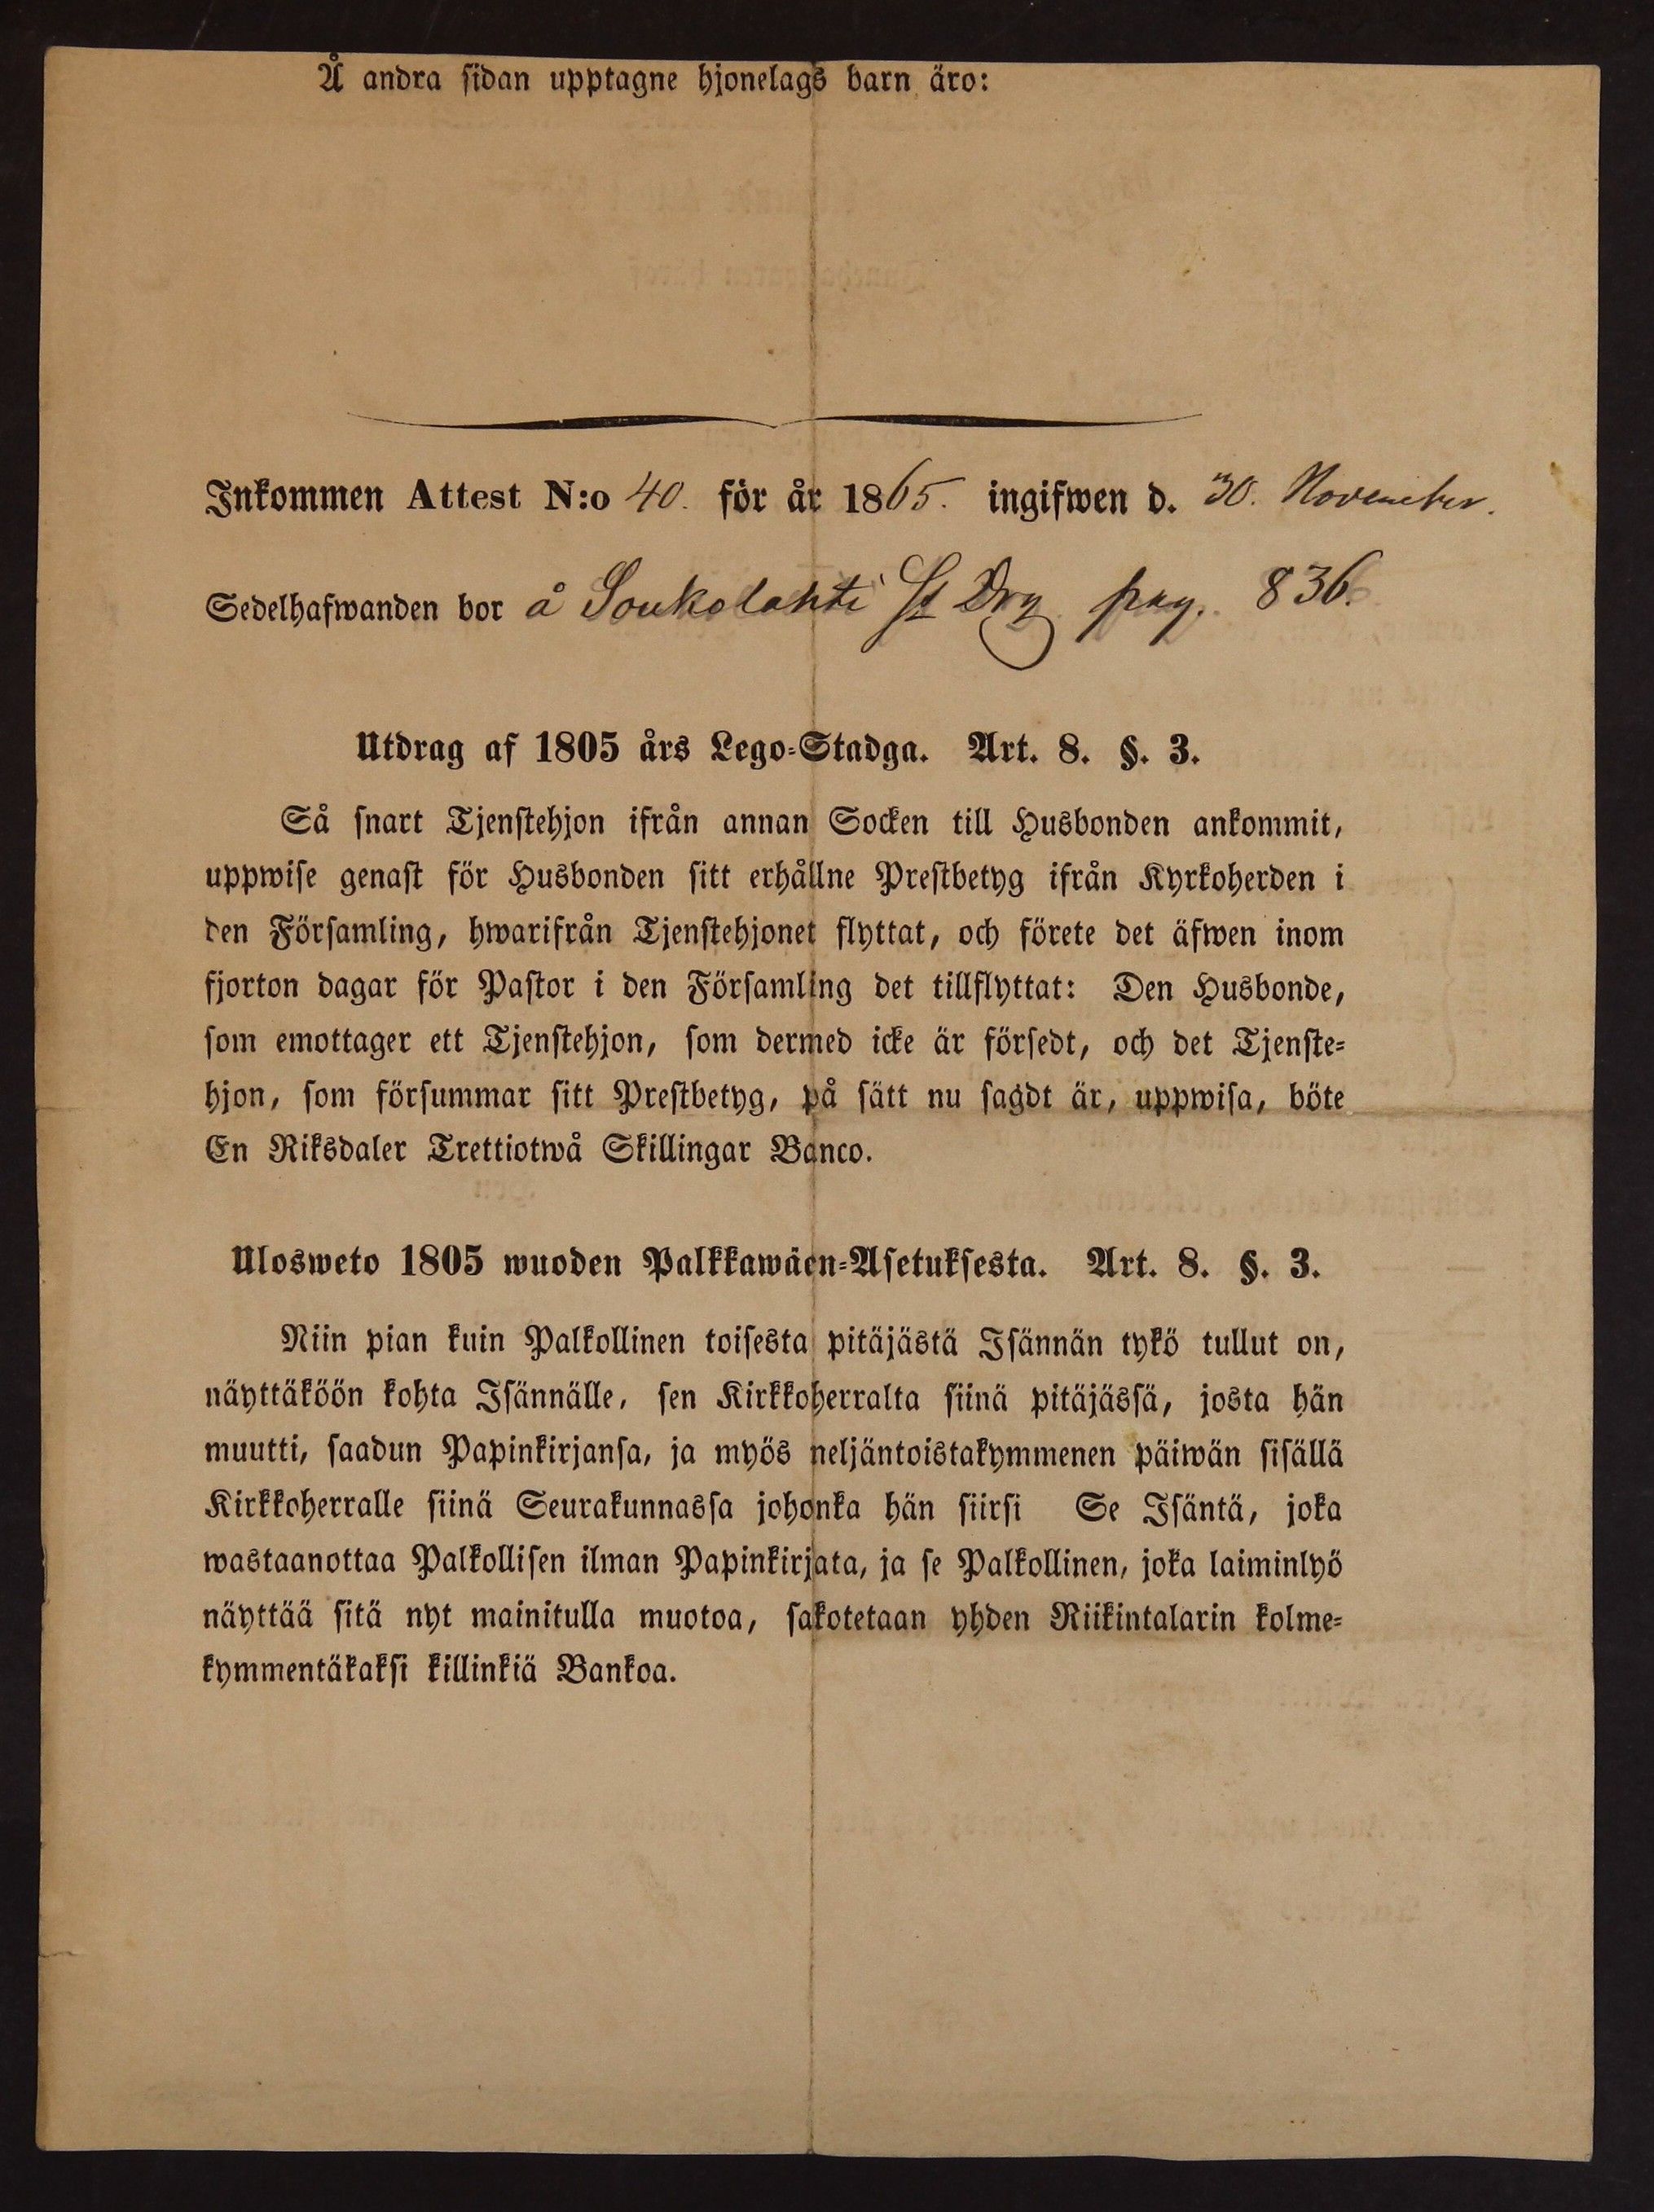 Å andra sidan upptagne hjonelags barn äro:
Inkommen Attest N:o 40. för år 1865. ingifwen d. 30. November.
Sedelhafwanden bor å Soukolahti pag. 836.
Utdrag af 1805 års Lego-Stadga. Art. 8. §. 3.
Så snart Tjenstehjon ifrån annan Socken till Husbonden ankommit,
uppwise genast för Husbonden sitt erhållne Prestbetyg ifrån Kyrkoherden i
den Församling, hwarifrån Tjenstehjonet flyttat, och förete det äfwen inom
fjorton dagar för Pastor i den Församling det tillflyttat: Den Husbonde,
som emottager ett Tjenstehjon, som dermed icke är försedt, och det Tjenste-
hjon, som försummar sitt Prestbetyg, på sätt nu sagdt är, uppwisa, böte
En Riksdaler Trettiotwå Skillingar Banco.
Ulosweto 1805 wuoden Palkkawäen-Asetuksesta. Art. 8. §. 3.
Niin pian kuin Palkollinen toisesta pitäjästä Isännän tykö tullut on,
näyttäköön kohta Isännälle, sen Kirkkoherralta siinä pitäjässä, josta hän
muutti, saadun Papinkirjansa, ja myös neljäntoistakymmenen päiwän sisällä
Kirkkoherralle siinä Seurakunnassa johonka hän siirsi Se Isäntä, joka
wastaanottaa Palkollisen ilman Papinkirjata, ja se Palkollinen, joka laiminlyö
näyttää sitä nyt mainitulla muotoa, sakotetaan yhden Riikintalarin kolme-
kymmentäkaksi killinkiä Bankoa.